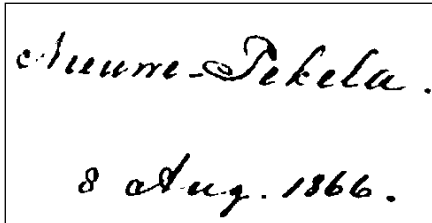 Nieuwe-Pekela.
8 Aug. 1866.